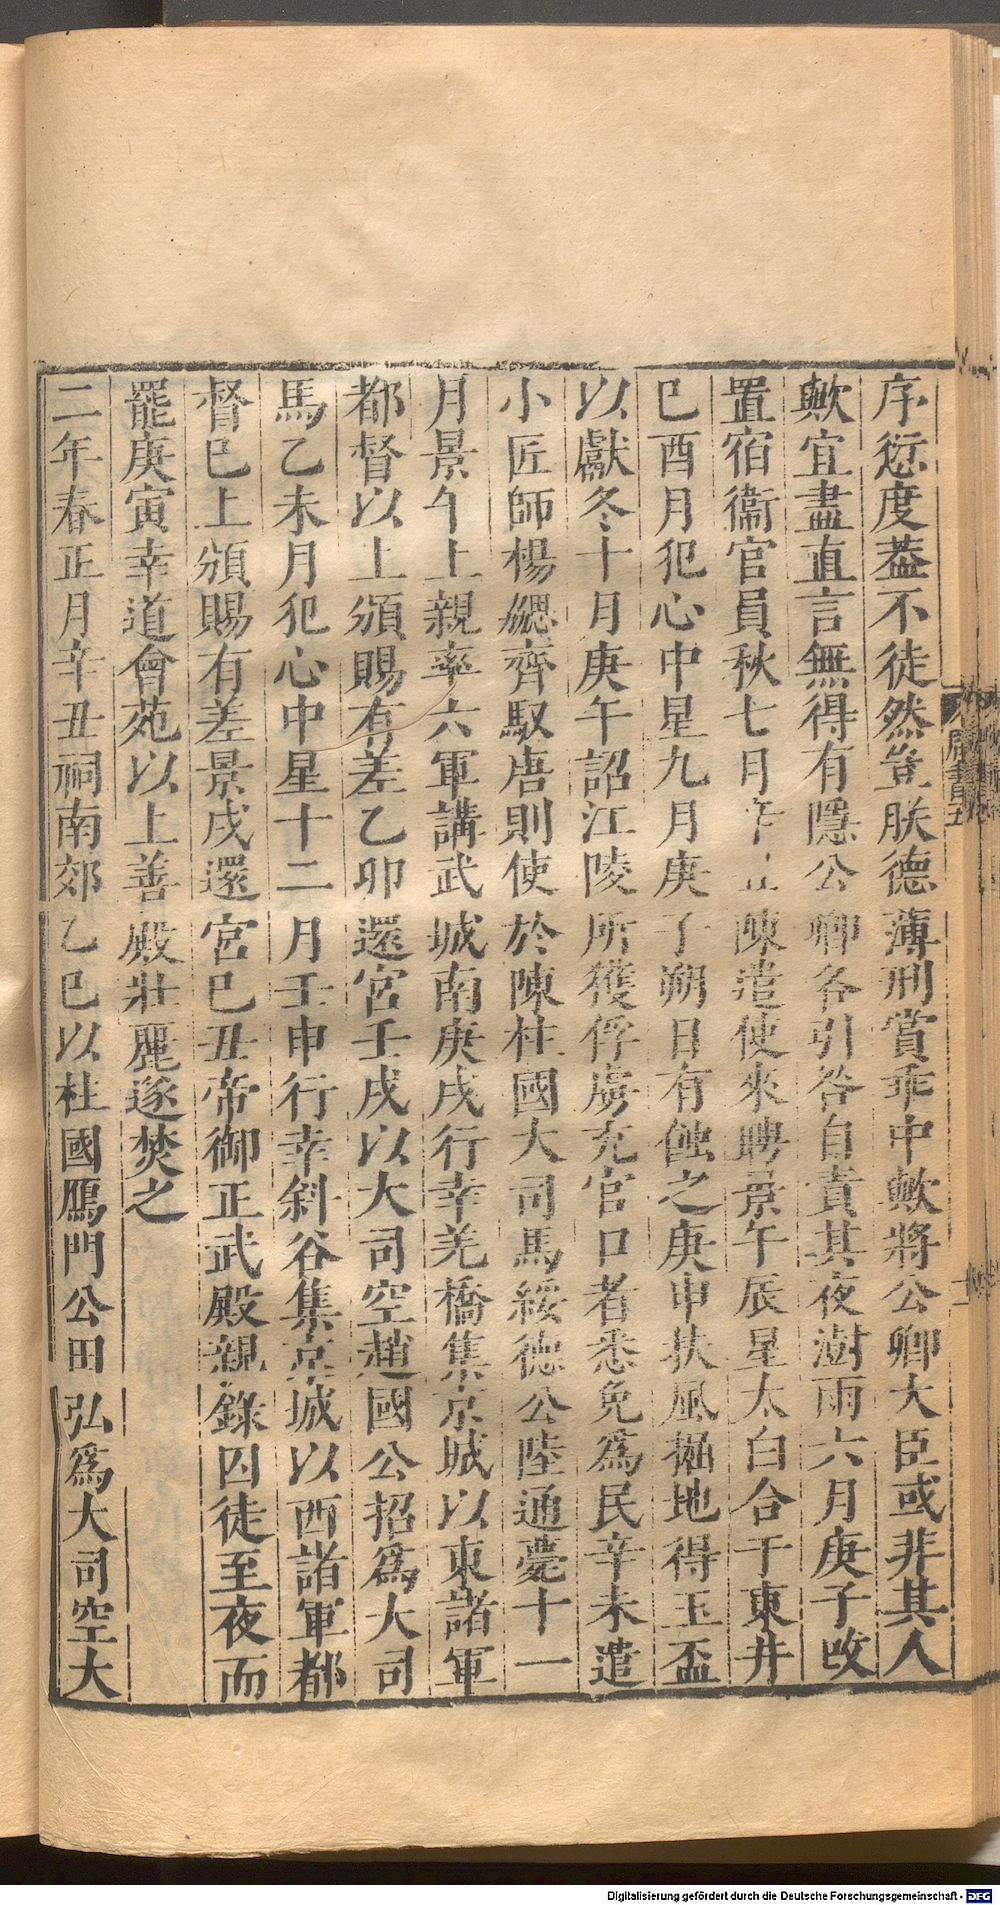 序愆度葢不徒然豈朕德薄刑賞乖中歟將公卿大臣或非其人
歟宜盡直言無得有隱公卿各引咎自責其夜澍雨六月庚子改
置宿衞官員秋七月陳遣使來聘景午辰星太白合于東井
巳酉月犯心中星九月庚子朔日有蝕之庚申扶風掘地得玉盃
以獻冬十月庚午詔江陵所獲俘虜充官口者悉免爲民辛未遣
小匠師楊勰齊馭唐則使於陳柱國大司馬綏德公陸通薨十一
月景午上親率六軍講武城南庚戌行幸羌橋集京城以東諸軍
都督以上頒賜有差乙卯還宮壬戌以大司空趙國公招爲大司
馬乙未月犯心中星十二月壬申行幸斜谷集京城以西諸軍都
督巳上頒賜有差景戌還宮巳丑帝御正武殿親錄囚徒至夜而
罷庚寅幸道會苑以上善殿壯麗遂焚之
二年春正月辛丑祠南郊乙巳以柱國鴈門公田弘爲大司空大
周書五
Digitalisierung gefördert durch die Deutsche Forschungsgemeinschaft - DFG